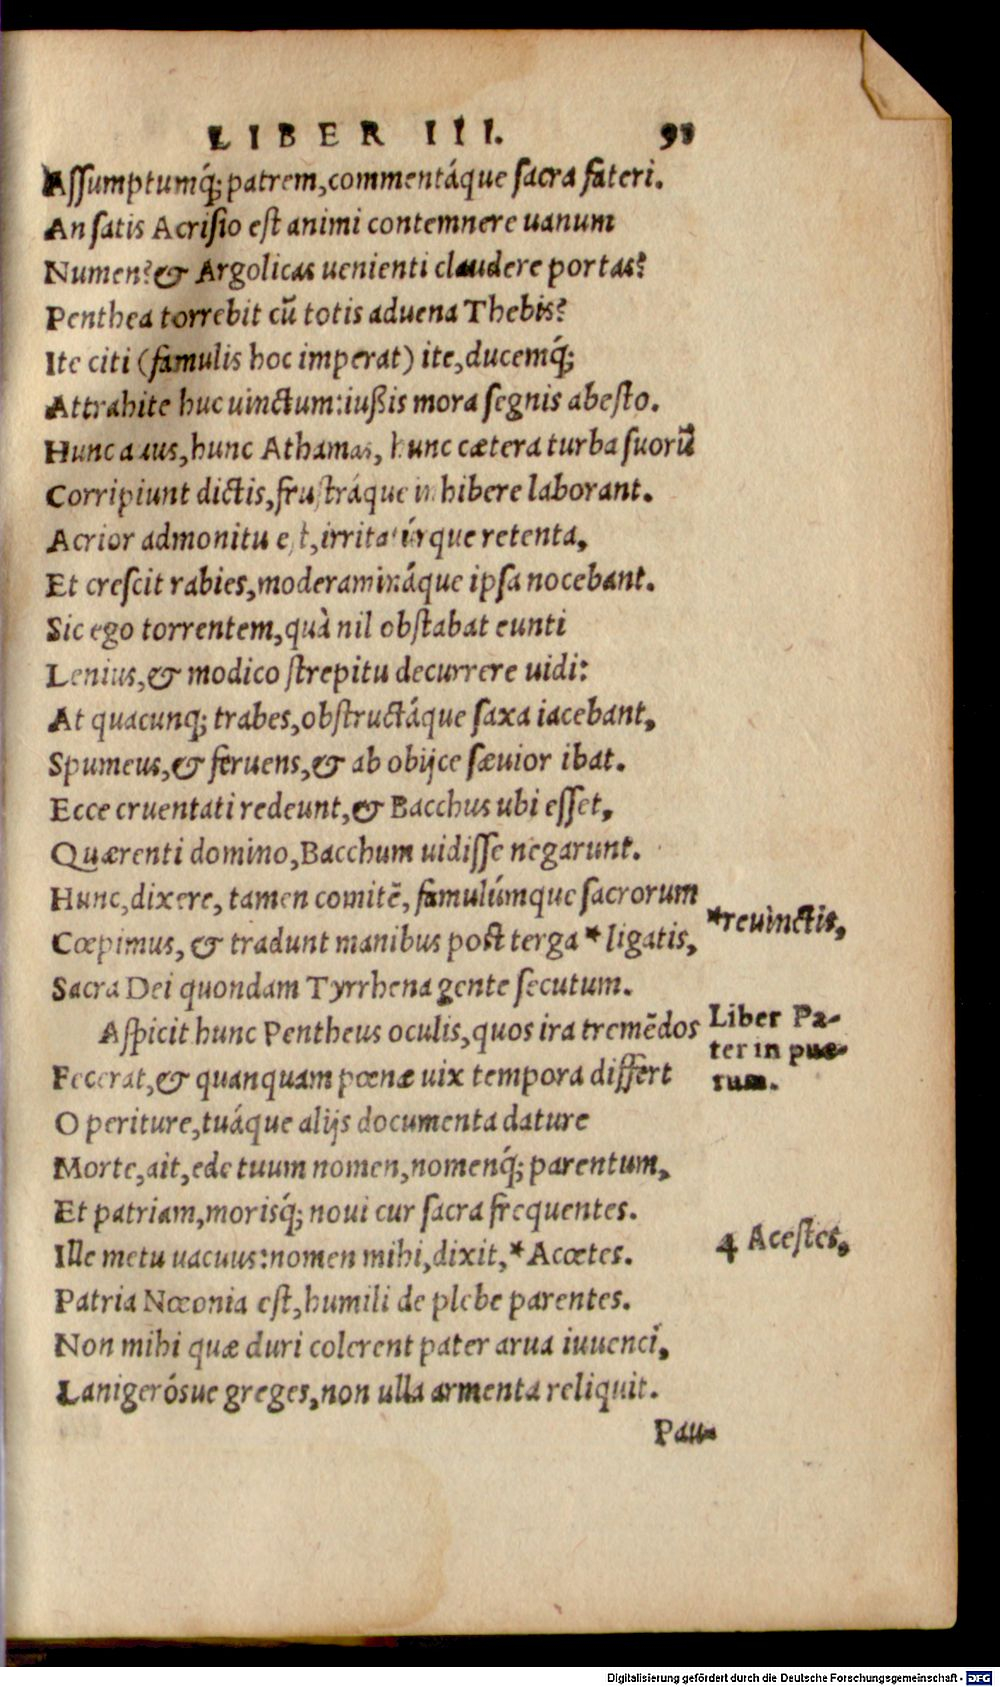 LIBER III. 91
Assumptumq́; patrem, commentáque sacra fateri.
An satis Acrisio est animi contemnere uanum
Numen? & Argolicas uenienti claudere portas?
Penthea torrebit cū totis aduena Thebis?
Ite citi (famulis hoc imperat) ite, ducemq́;
Attrahite huc uinctum: iußis mora segnis abesto.
Hunc auus, hunc Athamas, hunc cætera turba suorū
Corripiunt dictis, frustráque inhibere laborant.
Acrior admonitu est, irritatúrque retenta,
Et crescit rabies, moderamináque ipsa nocebant.
Sic ego torrentem, quà nil obstabat eunti
Lenius, & modico strepitu decurrere uidi:
At quacunq; trabes, obstructáque saxa iacebant,
Spumeus, & feruens, & ab obijce sæuior ibat.
Ecce cruentati redeunt, & Bacchus ubi esset,
Quærenti domino, Bacchum uidisse negarunt.
Hunc, dixere, tamen comitē, famulúmque sacrorum
Cœpimus, & tradunt manibus post terga * ligatis,
*reuinctis,
Sacra Dei quondam Tyrrhena gente secutum.
Aspicit hunc Pentheus oculis, quos ira tremēdos
Liber Pa-
ter in pue-
rum.
Fecerat, & quanquam pœnæ uix tempora differt
O periture, tuáque alijs documenta dature
Morte, ait, ede tuum nomen, nomenq́; parentum,
Et patriam, morisq́; noui cur sacra frequentes.
Ille metu uacuus: nomen mihi, dixit, * Acœtes.
4 Acestes,
Patria Nœonia est, humili de plebe parentes.
Non mihi quæ duri colerent pater arua iuuenci,
Lanigerósue greges, non ulla armenta reliquit.
Pau-
Digitalisierung gefördert durch die Deutsche Forschungsgemeinschaft - DFG